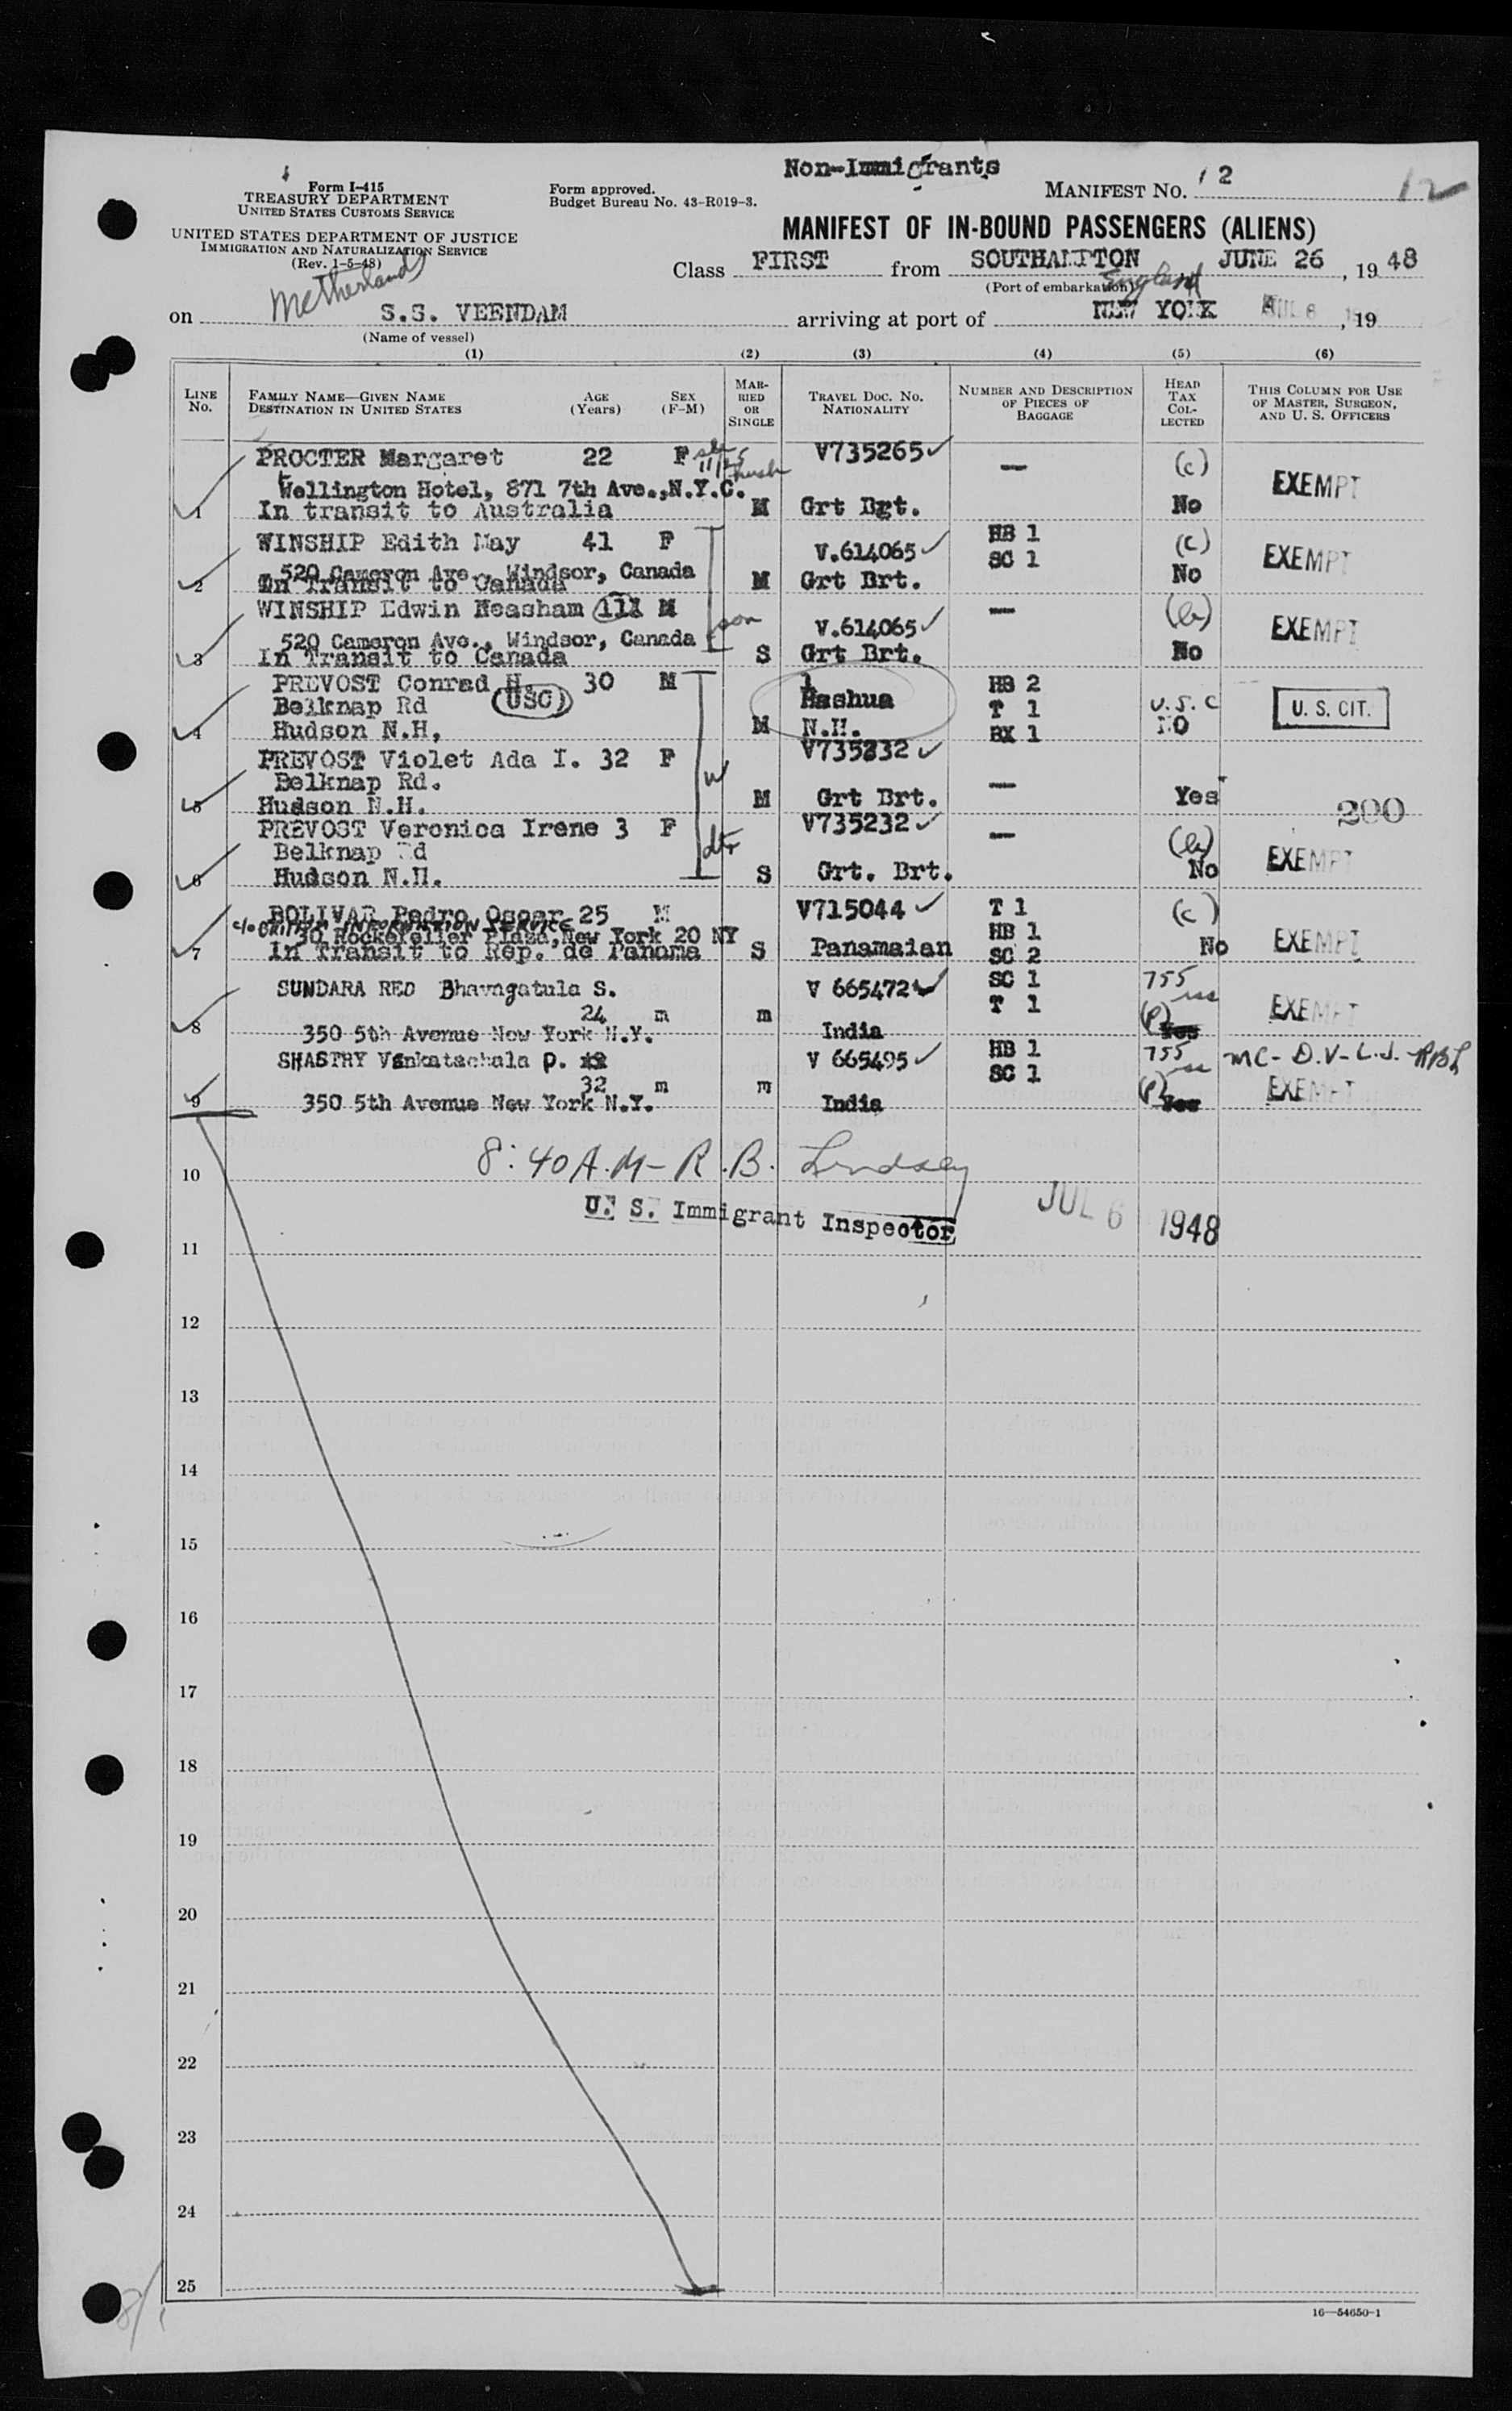 Non-Immigrants
Form I-415
TREASURY DEPARTMENT
UNITED STATES CUSTOMS SERVICE
Form approved.
Budget Bureau No. 43-R019-3.
MANIFEST NO. 2
12
UNITED STATES DEPARTMENT OF JUSTICE
IMMIGRATION AND NATURALIZATION SERVICE
(Rev. 1-5-48)
MANIFEST OF IN-BOUND PASSENGERS (ALIENS)
Class FIRST from SOUTHAMPTON JUNE 26, 1948
(Port of embarkation) England
Netherlands
on S.S. VEENDAM arriving at port of NEW YORK JUL 6, 19
(Name of vessel)
(1) (2) (3) (4) (5) (6)
LINE NO.
FAMILY NAME—GIVEN NAME
DESTINATION IN UNITED STATES
AGE (Years)
SEX (F-M)
MARRIED OR SINGLE
TRAVEL DOC. NO. NATIONALITY
NUMBER AND DESCRIPTION OF PIECES OF BAGGAGE
HEAD TAX COLLECTED
THIS COLUMN FOR USE OF MASTER, SURGEON, AND U. S. OFFICERS
PROCTER Margaret 22 F V735265 — (c) EXEMPT
Wellington Hotel, 871 7th Ave.,N.Y.C.
1 In transit to Australia M Grt Bgt. No
WINSHIP Edith May 41 F V.614065 HB 1 (c) EXEMPT
520 Cameron Ave., Windsor, Canada SC 1
2 In Transit to Canada M Grt Brt. No
WINSHIP Edwin Neasham 11 M son V.614065 — EXEMPT
520 Cameron Ave., Windsor, Canada
3 In Transit to Canada S Grt Brt. No
PREVOST Conrad H. 30 M Nashua HB 2 U.S.C U. S. CIT.
Belknap Rd (USC) T 1
4 Hudson N.H, M N.H. BX 1 NO
PREVOST Violet Ada I. 32 F w V735232
Belknap Rd. —
5 Hudson N.H. M Grt Brt. Yes 200
PREVOST Veronica Irene 3 F dtr V735232 — EXEMPT
Belknap Rd
6 Hudson N.H. S Grt. Brt. No
BOLIVAR Pedro Oscar 25 M V715044 T 1 (c) EXEMPT
c/o BRITISH INFORMATION SERVICE HB 1
30 Rockefeller Plaza,New York 20 NY
7 In Transit to Rep. de Panama S Panamaian SC 2 No
SUNDARA RED Bhavagatula S. V 665472 SC 1 755 EXEMPT
24 m m T 1
8 350 5th Avenue New York N.Y. India Yes
SHASTRY Venkatachala P. V 665495 HB 1 755 MC- D.V-L.J. RBL
32 m m SC 1 EXEMPT
9 350 5th Avenue New York N.Y. India Yes
8:40 A.M- R.B. Lindsey
10
U. S. Immigrant Inspector JUL 6 1948
11
12
13
14
15
16
17
18
19
20
21
22
23
24
25
16—54650-1